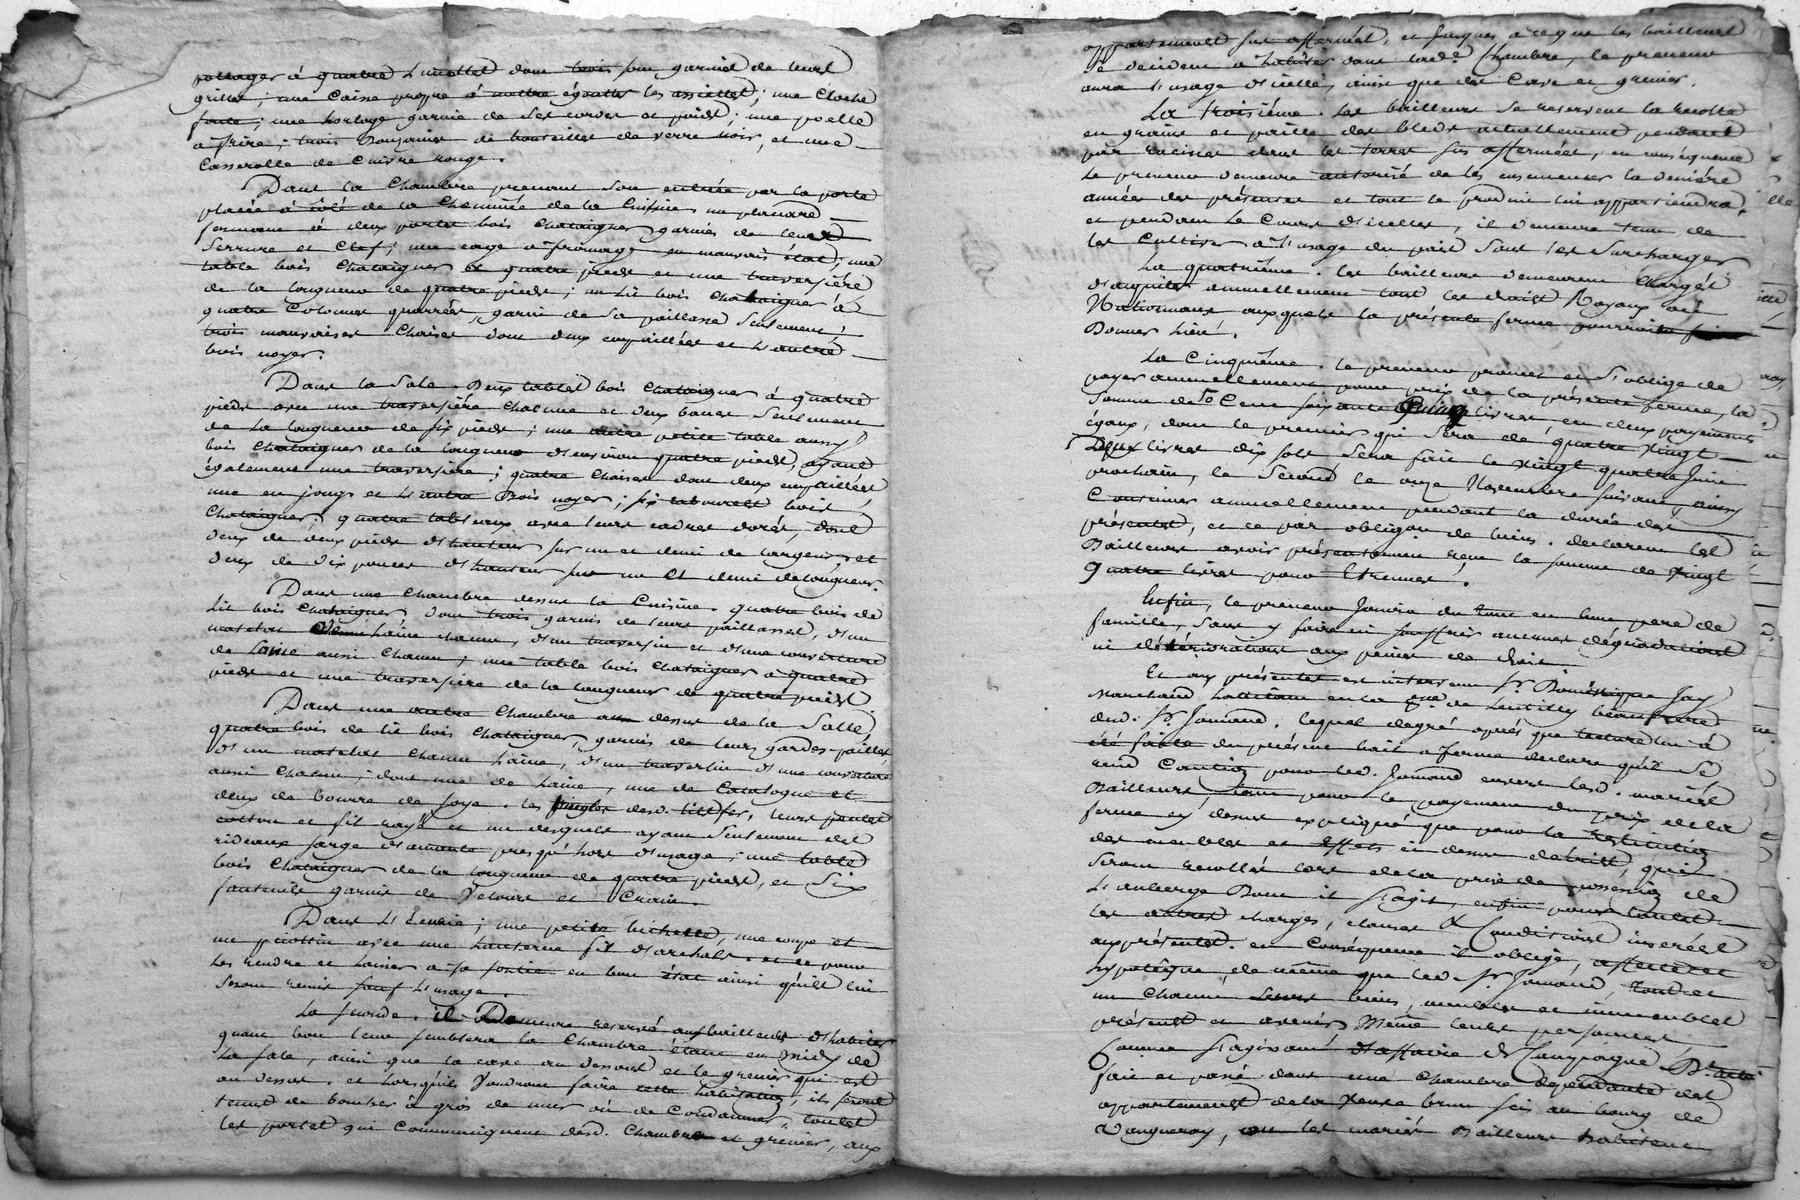 potager à quatre lunettes dont trois son garnies de leurs
grilles; une caisse propre à mettre égoutter les assiettes; une cloche
fonte; une horloge garnie de ses cordes et poids; une poelle
à frire; trois douzaines de bouteilles de verre noir, et une
Casserolle de cuivre rouge.
Dans la Chambre prenant son entrée par la porte
placée à côté de la cheminée de la Cuisine, un placard
fermant à deux portes bois Chataignier garnies de leurs
Serrure et Clef; une cage à fromage en mauvais état; une
table bois Chataignier à quatre pieds et une traversière
de la longueur de quatre pieds; un lit bois Chataignier à
quatre Colonnes quarrées, garni de sa paillasse seulement;
trois mauvaises Chaises dont deux empaillées et l'autre
bois noyer.
Dans la Sale. Deux tables bois Chataignier à quatre
pieds avec une traversière chacune et deux bancs seulement
de la longueur de six pieds; une petite table aussy
bois Chataignier de la longueur d'environ quatre pieds, ayant
également une traversière; quatre chaises dont deux empaillées
une en joncs et l'autre Bois noyer; six tabourets bois
Chataignier; quatre tableaux avec leurs cadres dorés, dont
deux de deux pieds d'hauteur sur un et demi de largeur, et
deux de dix pouces d'hauteur sur un et demi de longueur.
Dans une Chambre dessus la Cuisine. quatre bois de
lit bois Chataignier, dont trois garnis de leurs paillasses, d'un
matelat laine chacun, d'un traversin et d'une couverture
de laine aussi chacun; une table bois Chataignier à quatre
pieds et une traversière de la longueur de quatre pieds
Dans une autre Chambre au dessus de la Salle,
quatre bois de lit bois Chataignier, garnis de leurs gardes-pailles,
d'un matelat chacun laine, d'un traversin d'une couverture
aussi chacun, dont une de laine, une de Catalogne et
deux de bourre de soye. les desd. lits, leurs pentes
cotton et fil rayé et un desquels ayant seulement des
rideaux sarge d'amante presqu'hors d'usage; une table
bois Chataignier de la longueur de quatre pieds, et Six
fauteuils garnis de Velours et Crain.
Dans l'Ecurie; une petite bichette, une coupe et
un picottin avec une lanterne fil d'archals. et le
les rendre et laisser à sa sortie en bon état ainsi qu'ils lui
seront remis sauf l'usage.
La seconde. il Demeure reservé aux bailleurs d'habiter
quant bon leur semblera la Chambre étant en midy de
la sale, ainsi que la cave au dessous et le grenier qui est
au dessus. et lorsqu'ils Voudront faire cette habitation, ils seront
tenus de boucher à gros de mur ou de Condanner, toutes
les portes qui communiquent desd. Chambre et grenier, aux
appartements sus affermés, et jusques à ce que les bailleurs
se decident à habiter dans lad.e Chambre, le preneur
aura l'usage d'icelle, ainsi que des Cave et grenier.
La troisième. les bailleurs se reservent la recolte
en grains et paille des bleds actuellement pendants
par racines dans les terres sus affermées, en conséquence
le preneur demeure autorisé de les ensemencer la dernière
années des présentes et tout le produit lui appartiendra,
et pendant le Cours d'icelles, il demeure tenu de
les cultiver à l'usage du païs sans les surcharger
La quatrième. les bailleurs demeurent chargés
d'acquitter annuellement tous les droits Royaux où
Nationnaux auxquels la présente ferme pourroit
Donner lieu.
La Cinquième. le preneur promet et s'oblige de
payer annuellement pour prix de la présente ferme, la
somme de Cent soixante Cinq livres, en deux payements
égaux, dont le premier qui sera de quatre vingt
Deux livres dix sols sera fait le vingt quatre Juin
prochain, le second le onze Novembre suivant, ainsy
Continuer annuellement pendant la durée des
présentes, et ce par obligaon de biens. declarent les
Bailleurs avoir présentement reçu la somme de Vingt
Quatre livres pour Etrennes.
Enfin, le preneur jouira du tout en bon pere de
famille, sans y faire ni souffrir aucunes dégradations
ni détériorations aux peines de droit.
Et aux présentes est intervenu Sr. Dominique Jay
Marchand habitant en la de Lentilly beau frere
dud. Sr. Jomand, lequel degré après que lecture lui à
été faitte du présent bail à ferme declare qu'il se
rend Caution pour led. Jomand envers lesd. mariés
Bailleurs, tant pour le payement du prix de la
ferme cy dessus expliqué que pour la restitution
des meubles et effets ci dessus détaillés, qui
seront recollés lors de la prise de possession de
l'auberge dont il s'agit, enfin pour toutes
les autres charges, clauses & Conditions inserées
aux présentes. en Conséquence il oblige, affecte et
hypotêque, de même que led. Sr. Jomand tous et
un Chacun leurs biens, meubles et immeubles
présents et avenirs Même leurs personnes
Comme s'agissant d'affaire de Campagne.
fait et passé dans une chambre dependante des
appartements de la sis au bourg de
Vaugneray, où les mariés Bailleurs habitent